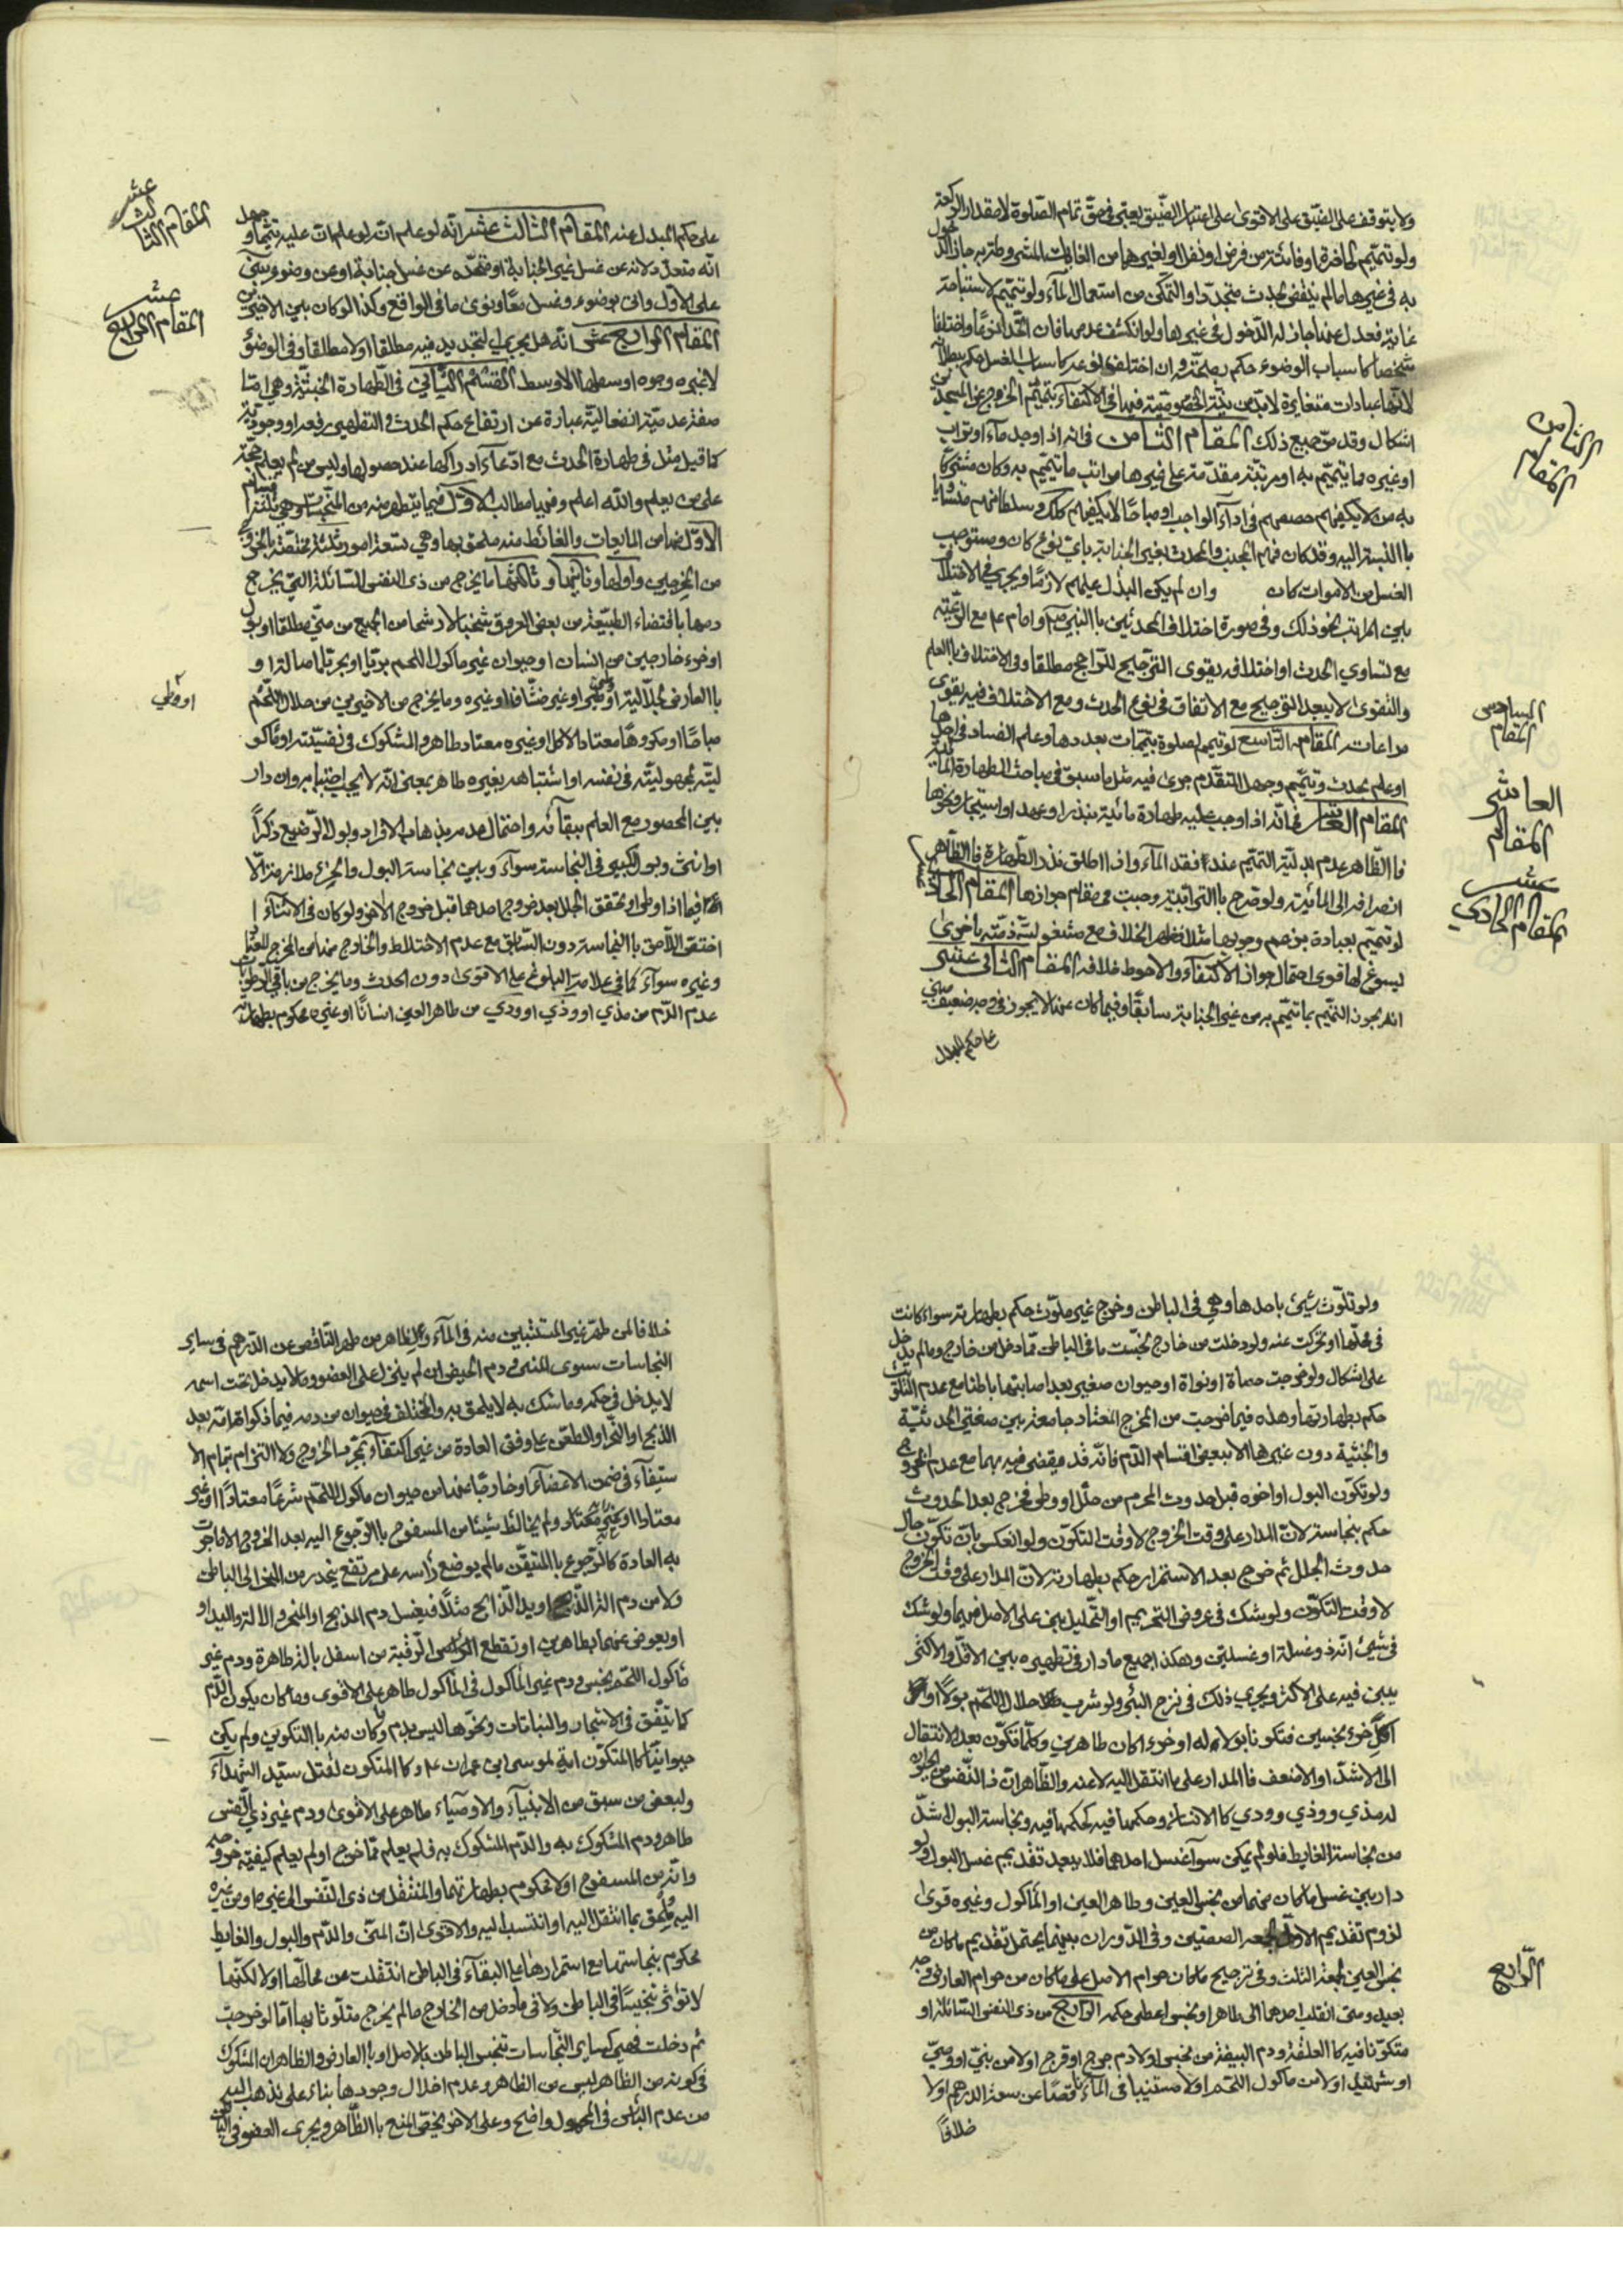 ولا يتوقف على الضيق على الاقوى على اعتبار الضيق يعتبر في حق تمام الصلوة لا مقدار الركعة
ولو تيمم لحاضرة او فائتة من فرض او نفل او لغيرهما من الغايات المشروطة به جاز الدخول
به في غيرها ما لم ينتقض بحدث متجدد او التمكن من استعمال الماء ولو تيمم لاستباحة
غاية فعدل عنها جاز له الدخول في غيرها ولو انكشف عدمها فان اتحدا نوعا واختلفا
شخصا كاسباب الوضوء حكم بصحته وان اختلفوا نوعا كاسباب الغسل حكم ببطلانه
لانها عبادات متغايرة لا بد من نية الخصوصية فيها في الاكتفاء بتيمم الخروج عن المسجدين
اشكال وقد مر جميع ذلك المقام الثامن في انه اذا وجد ماء او تراب
او غيره مما يتيمم به او مرتبة مقدمة على غيرها من مراتب ما يتيمم به وكان مشتركا
به من لا يكفيهم حصصهم في اداء الواجب او مباحا لا يكفيهم كذلك وسلطانهم متساو
باالنسبة اليه وقد كان فيهم الجنب والمحدث بغير الجنابة باي نوع كان ومستوجب
الغسل من الاموات كان وان لم يكن البذل عليهم لازما ويجري في الاختلاف
بين المراتب نحو ذلك وفي صورة اختلاف المحدثين باالنبي ص وامام ع مع الرعية
مع تساوي الحدث او اختلافه يقوى الترجيح للراجح مطلقا وفي الاختلاف باالعلم
والتقوى لا يبعد الترجيح مع الاتفاق في نوع الحدث ومع الاختلاف فيه يقوى
مراعات المقام التاسع لو تيمم لصلوة بتيممات بعددها وعلم الفساد في احدها
او علم بحدث وتيمم وجهل المتقدم جرى فيه مثل ما سبق في مباحث الطهارة المائية
المقام العاشر في انه اذا وجب عليه طهارة مائية بنذر او عهد او استيجار ونحوها
فاالظاهر عدم بدلية التيمم عنده اذا فقد الماء واذا اطلق نذر الطهارة فاالظاهر
انصرافه الى المائية ولو صرح باالترابية وجبت في مقام جوازها المقام الحادي عشر
لو تيمم بعبادة بزعم وجوبها مثلا فظهر الخلاف مع مشغولية ذمته باخرى
ليسوغ لها قوى احتمال جواز الاكتفاء والاحوط خلافه المقام الثاني عشر
انه يجوز التيمم بما تيمم به من غير الجنابة سابقا وفيما كان عنها لا يجوز في وجه ضعيف مبني
على حكم المبدل
الثامن
المقام
السادس
المقام
العاشر
المقام
عشر
المقام الحادي
على حكم المبدل عنه المقام الثالث عشر انه لو علم ان عليه تيمما وجهل
انه متعدد لانه عن غسل غير الجنابة او متحد عن غسل جنابة او عن وضوء بنى
على الاول واتى بوضوء وغسل معا ونوى ما في الواقع وكذا لو كان بين الاخيرين
المقام الرابع عشر انه هل يجري التجديد فيه مطلقا اولا مطلقا وفي الوضوء
لا غيره وجوه اوسطها الاوسط القسم الثاني في الطهارة الخبثية وهي اما
صفة عدمية انفعالية عبارة عن ارتفاع حكم الحدث والتطهير رفعه او وجودية
كما قيل مثل في طهارة الحدث مع ادعاء ادراكها عند حصولها وليس من لم يعلم حجة
على من يعلم والله اعلم وفيها مطالب الاول فيما يتطهر منه من النجاسات وهي ثلثة اقسام
الاول منها من المايعات والغائط منه ملحق بها وهي تسعة امور ثلثة مختصة باالخروج
من المخرجين واولها وثانيها وثالثها ما يخرج من ذي النفس السائلة التي يخرج
دمها باقتضاء الطبيعة من بعض العروق شخبا لا رشحا من الجميع من مني مطلقا او بول
او خرء خارجين من انسان او حيوان غير ماكول اللحم بريا او بحريا اصالة او
باالعارض بجلالية او وطي او غير مشافا او غيره وما يخرج من الاخيرين من حلال اللحم
مباحا او مكروها معتاد الاكل او غيره معتاد طاهر والمشكوك في نفسيته او ماكو
ليته مجهوليته في نفسه او اشتباهه بغيره طاهر بمعنى انه لا يجب اجتنابه وان دار
بين المحصور مع العلم ببقائه واحتمال عدمه بذهاب الافراد وبول الرضيع ذكرا
او انثى وبول الكبير في النجاسة سواء وبين نجاسة البول والخرء ملازمة الا
فيما اذا وطئ او تحقق الجلل بعد خروج احدهما قبل خروج الاخر ولو كان في الاثناء ا
ختص اللاحق باالنجاسة دون السابق مع عدم الاختلاط والخارج منها من المخرج المعتاد
وغيره سواء كما في علامة البلوغ على الاقوى دون الحدث وما يخرج من باقي الرطوبات
عدم الدم من مذي او وذي او ودي من طاهر العين انسانا او غيره محكوم بطهارته
عشر
المقام الثالث
عشر
المقام الرابع
او وطي
ولو تلوث شيئ باحدها وهي في الباطن وخرج غير ملوث حكم بطهارته سواء كانت
في محلها او تحركت عنه ولو دخلت من خارج نجست ما في الباطن مما دخل من خارج وما لم يدخل
على اشكال ولو خرجت حصاة او نواة او حيوان صغير بعد اصابتها باطنا مع عدم التلوث
حكم بطهارتها وهذه فيما خرجت من المخرج المعتاد جامعة بين صفتي الحدثية
والخبثية دون غيرها الا ببعض اقسام الدم فانه قد يقضى فيه بهما مع عدم الخروج
ولو تكون البول او اخوه قبل حدوث المحرم من جلل او وطي فخرج بعد الحدوث
حكم بنجاسته لان المدار على وقت الخروج لا وقت التكون ولو انعكس بان تكون حال
حدوث الجلل ثم خرج بعد الاستمرار حكم بطهارته لان المدار على وقت الخروج
لا وقت التكون ولو شك في عروض التحريم او التحليل بنى على الاصل فيهما ولو شك
في شيئ انه ذو غسلة او غسلتين وهكذا جميع ما دار في تطهيره بين الاقل والاكثر
يبنى فيه على الاكثر ويجري ذلك في نزح البئر ولو شرب حلال اللحم بولا او
اكل خرء نجسين فتكونا بولا له او خرء كان طاهرين وكلما تكون بعد الانتقال
الى الاشد او الاضعف فاالمدار على ما انتقل اليه لا عنه والظاهر ان ذا النفس من الحيوان
له مذي ووذي وودي كاالانسان وحكمها فيه كحكمها فيه ونجاسة البول اشد
من نجاسة الغايط فلو لم يمكن سوا غسل احدهما فلا يبعد تقديم غسل البول ولو
دار بين غسل ما كان منهما من نجس العين وطاهر العين او الماكول وغيره قوى
لزوم تقديم الاول لجمعه الصفتين وفي الدوران بينهما يحتمل تقديم ما كان من
نجس العين لجمعه الثلث وفي ترجيح ما كان حرام الاصل على ما كان من حرام العارض وجه
بعيد ومتى انقلب احدهما الى طاهر او نجس اعطي حكمه الرابع من ذي النفس السائلة او
متكونا فيه كاالعلقة ودم البيضة من نجس اولا دم جرح او قرح اولا من نبي او وصي
او شهيد اولا من ماكول اللحم اولا مستنبا في الماء ناقصا عن سعة الدرهم اولا
خلافا
الرابع
خلافا لمن طهر غير المستبين منه في الماء ولظاهر من طهر الناقص عن الدرهم في ساير
النجاسات سوى المني ودم الحيض ان لم ينزل على العضو وما لا يدخل تحت اسمه
لا يدخل في حكمه وما شك به لا يلحق به والمختلف في حيوان من دمه فيما ذكوته تامة بعد
الذبح او النحر او الطعن على وفق العادة من غير اكتفاء بمجرد الخروج ولا التزام تمام الا
ستيفاء في ضمن الاعضاء او خارجا عنها من حيوان ماكول اللحم شرعا معتادا او غير
معتاد ولم يخالط شيئا من المسفوح باالرجوع اليه بعد الخروج الا ما جرت
به العادة كاالرجوع باالمتيقن ما لم يوضع راسه على مرتفع ينحدر من النحر الى الباطن
ولا من دم الة الذبح او يد الذابح مثلا فيغسل دم المذبح او المنحر والالة واليد او
او يعوض عنهما بطاهرين او تقطع الراس الرقبة من اسفل بالة طاهرة ودم غير
ماكول اللحم نجس ودم غير الماكول في الماكول طاهر على الاقوى وما كان بكون الدم
كما يتفق في الاشجار والنباتات ونحوها ليس بدم وكان منه باالتكوين ولم يكن
حيوانيا كاالمتكون اية لموسى ابن عمران ع وكاالمتكون لقتل سيد الشهداء
ولبعض من سبق من الانبياء والاوصياء طاهر على الاقوى ودم غير ذي النفس
طاهر ودم المشكوك به والدم المشكوك به فلم يعلم مما خرج او لم يعلم كيفية خروجه
وانه من المسفوح اولا محكوم بطهارتهما والمنتقل من ذي النفس الى غيرها ومن غيره
اليه يلحق بما انتقل اليه او انتسب اليه والاقوى ان المني والدم والبول والغايط
محكوم بنجاستها مع استمرارها على البقاء في الباطن انتقلت عن محالها اولا لكنها
لا تؤثر تنجيسا في الباطن ولا في ما دخل من الخارج ما لم يخرج متلوثا بها اما لو خرجت
ثم دخلت فهي كساير النجاسات تنجس الباطن بالاصل او باالعارض والظاهر ان المشكوك
في كونه من الظاهر ليس من الظاهر وعدم اخلال وجودها بناء على مذهب
من عدم الباس في المحمول واضح وعلى الاخر يختص المنع باالظاهر ويجري العضو في